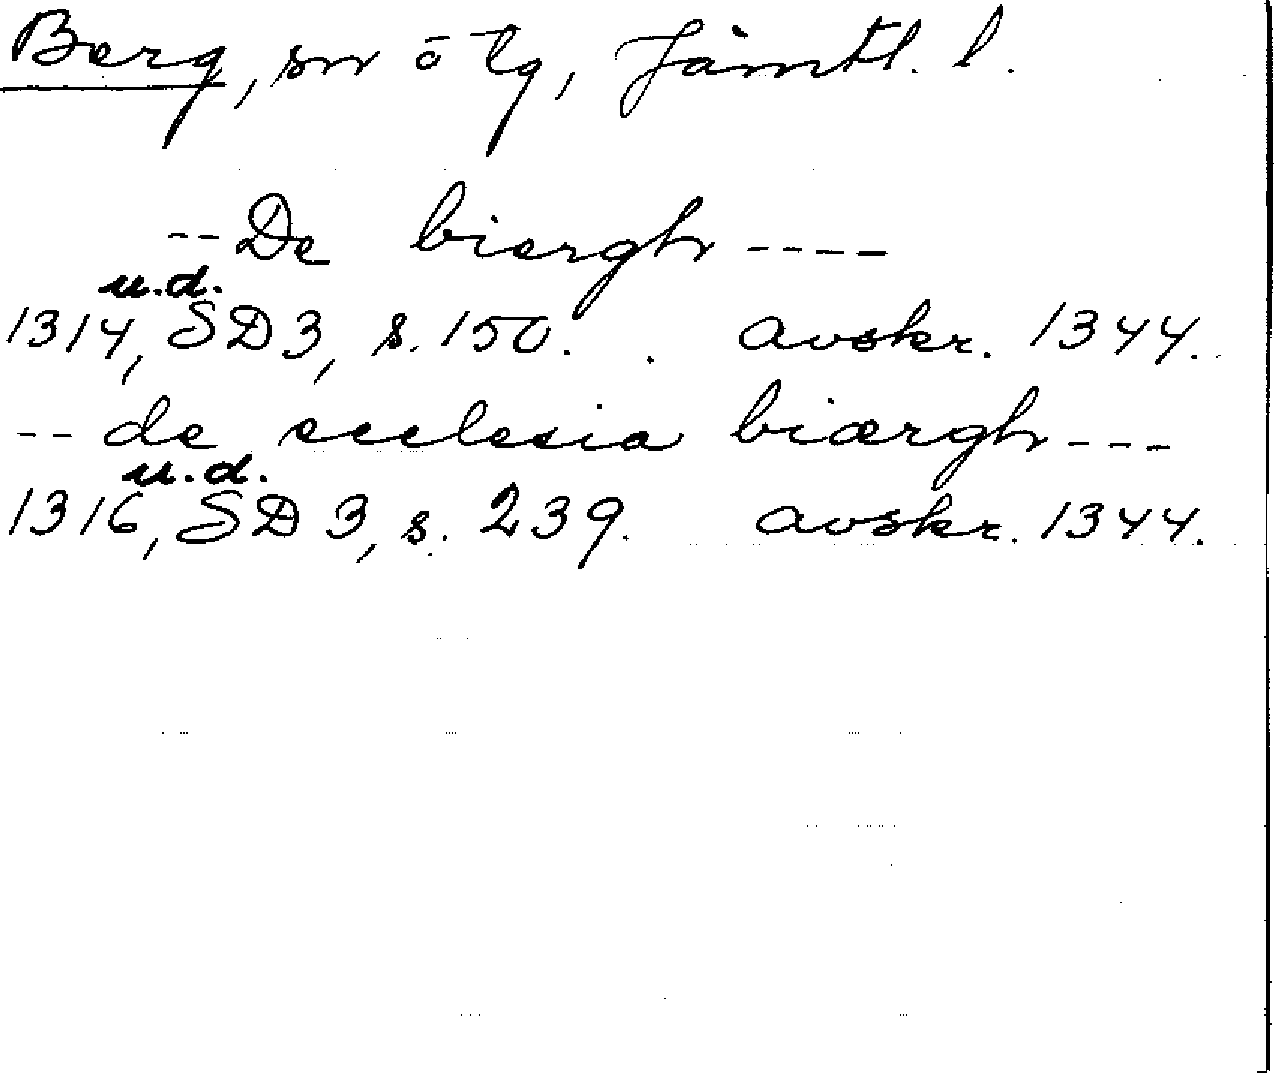 Berg, sn o tg, Jämtl. l.
--De biergh----
u.d.
1314, SD3, s. 150. avskr. 1344.
--de ecclesia biærgh---
u.d.
1316, SD 3, s. 239. avskr. 1344.